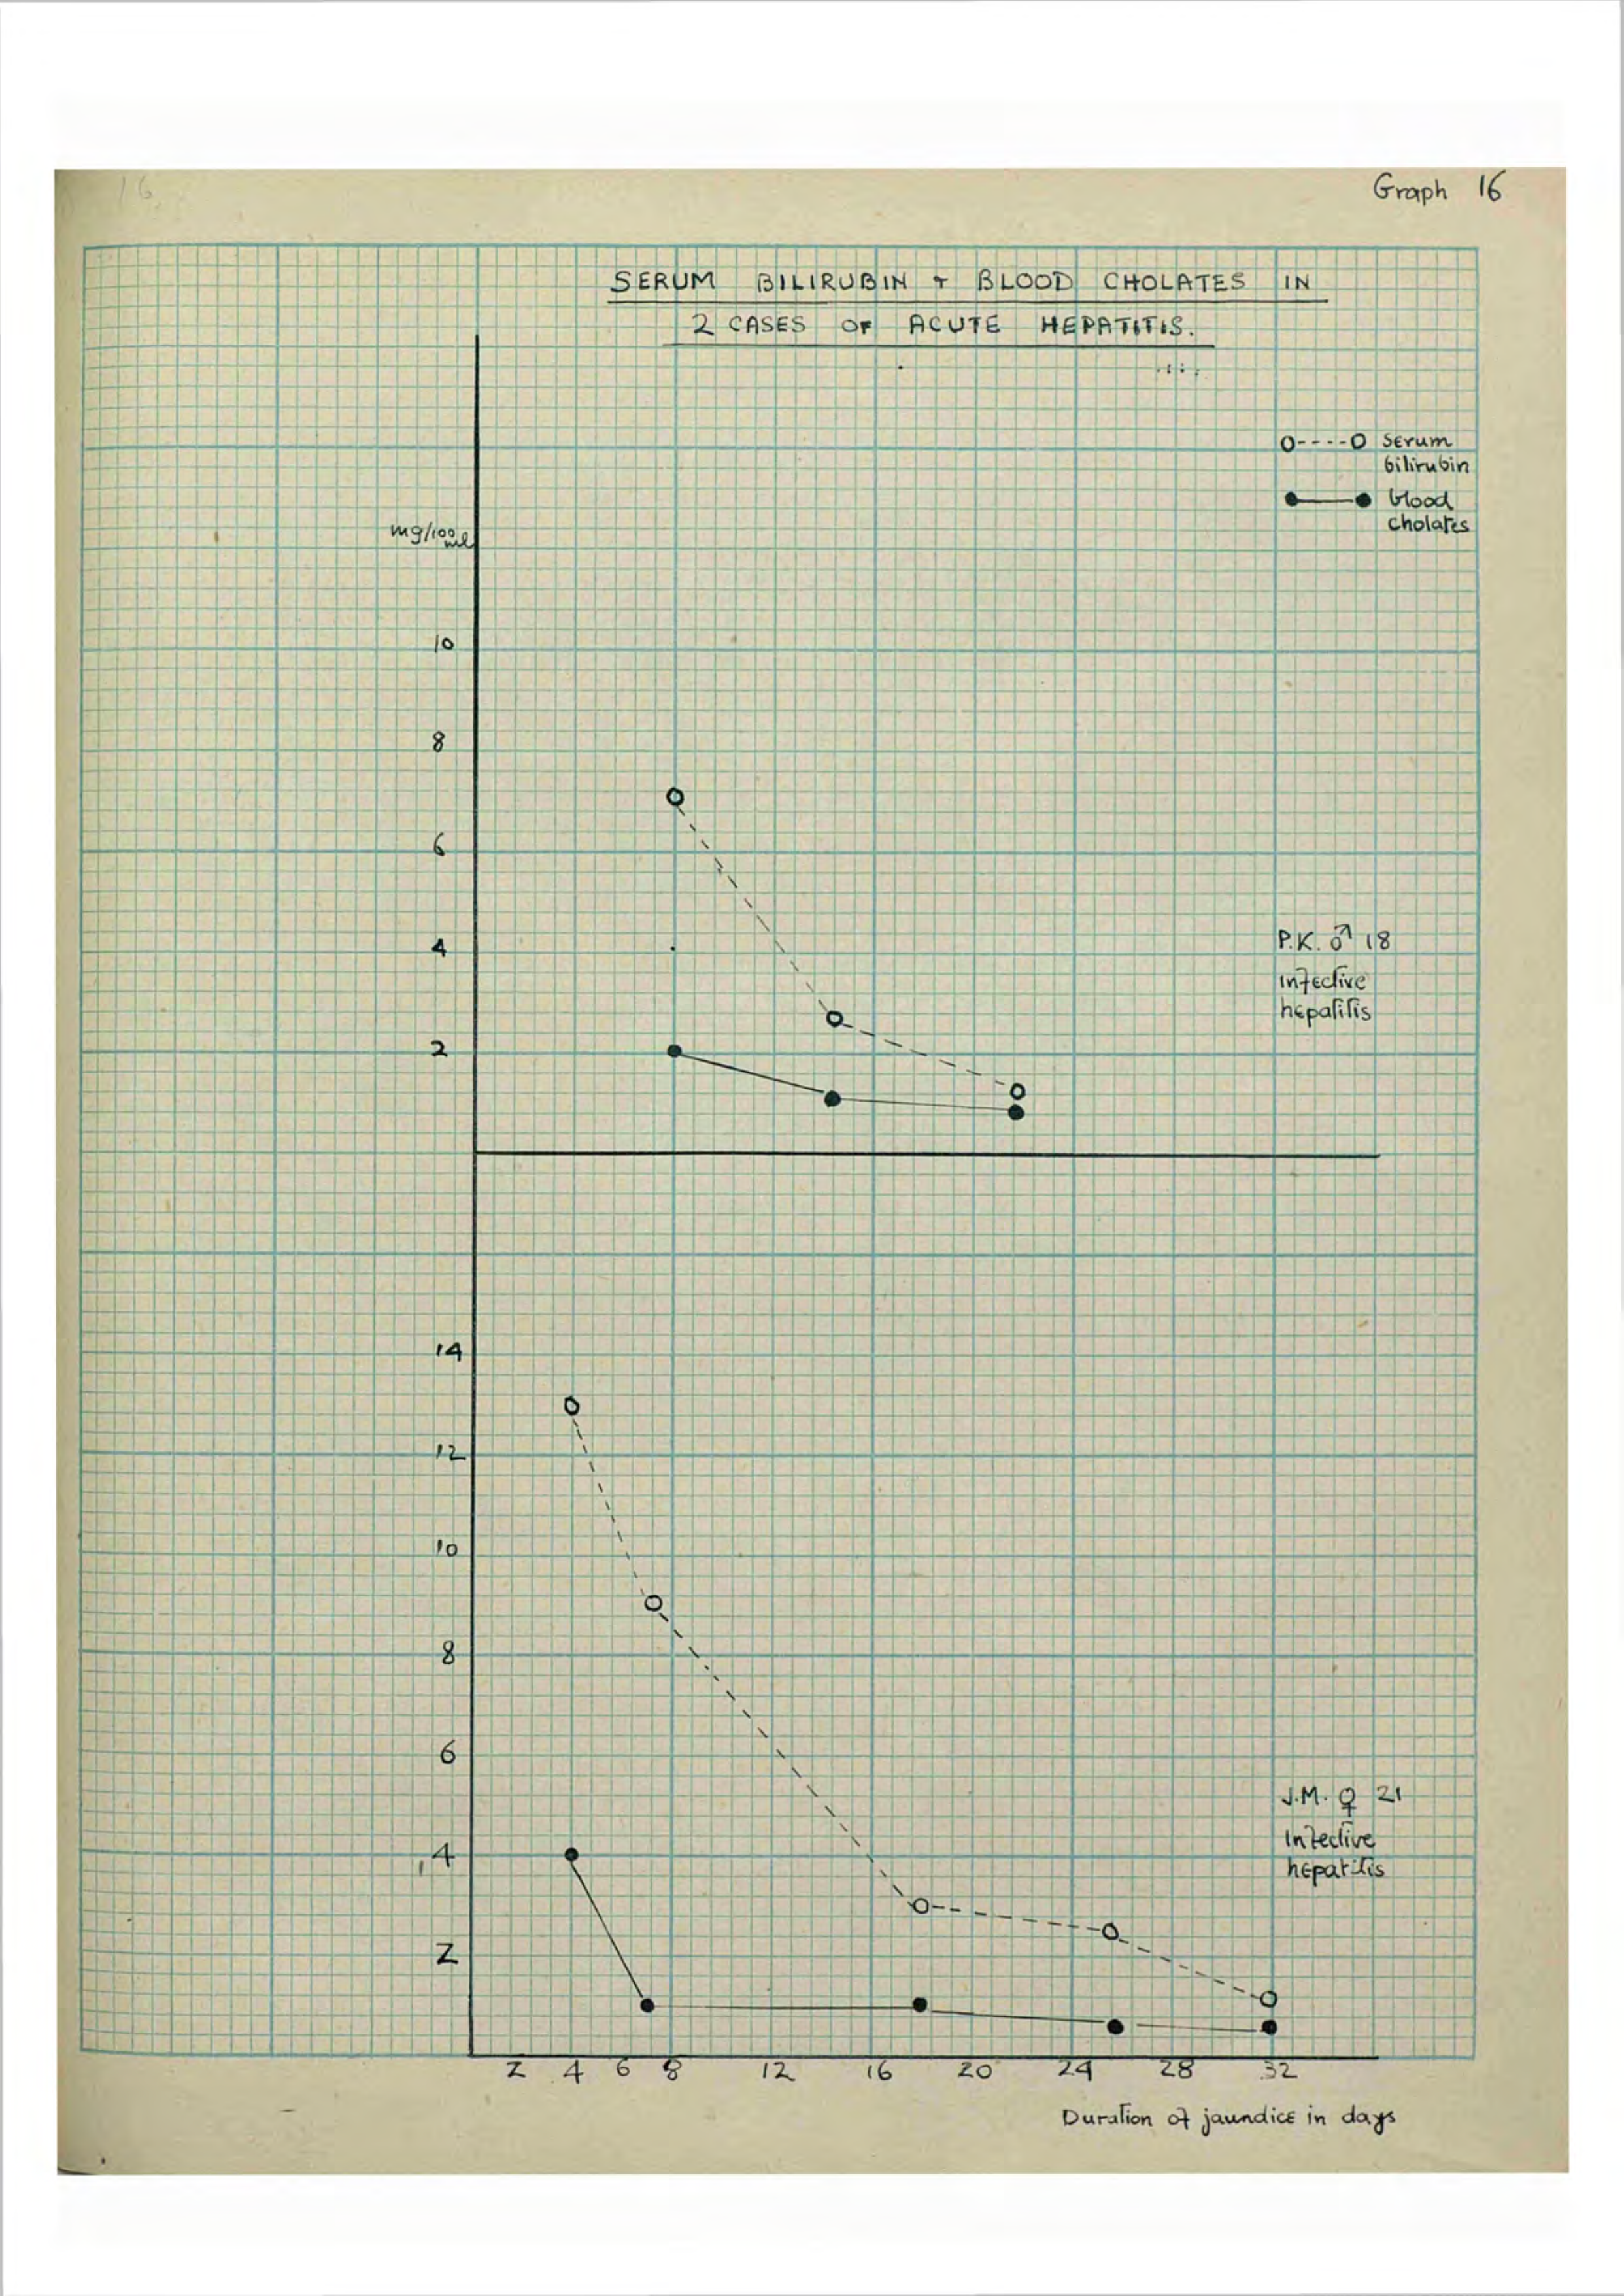 16
Graph 16
SERUM BILIRUBIN + BLOOD CHOLATES IN
2 CASES OF ACUTE HEPATITIS.
O----O serum
bilirubin
●——● blood
cholates
mg/100ml
10
8
6
4
2
P.K. ♂ 18
infective
hepatitis
14
12
10
8
6
4
2
J.M. ♀ 21
Infective
hepatitis
2 4 6 8 12 16 20 24 28 32
Duration of jaundice in days